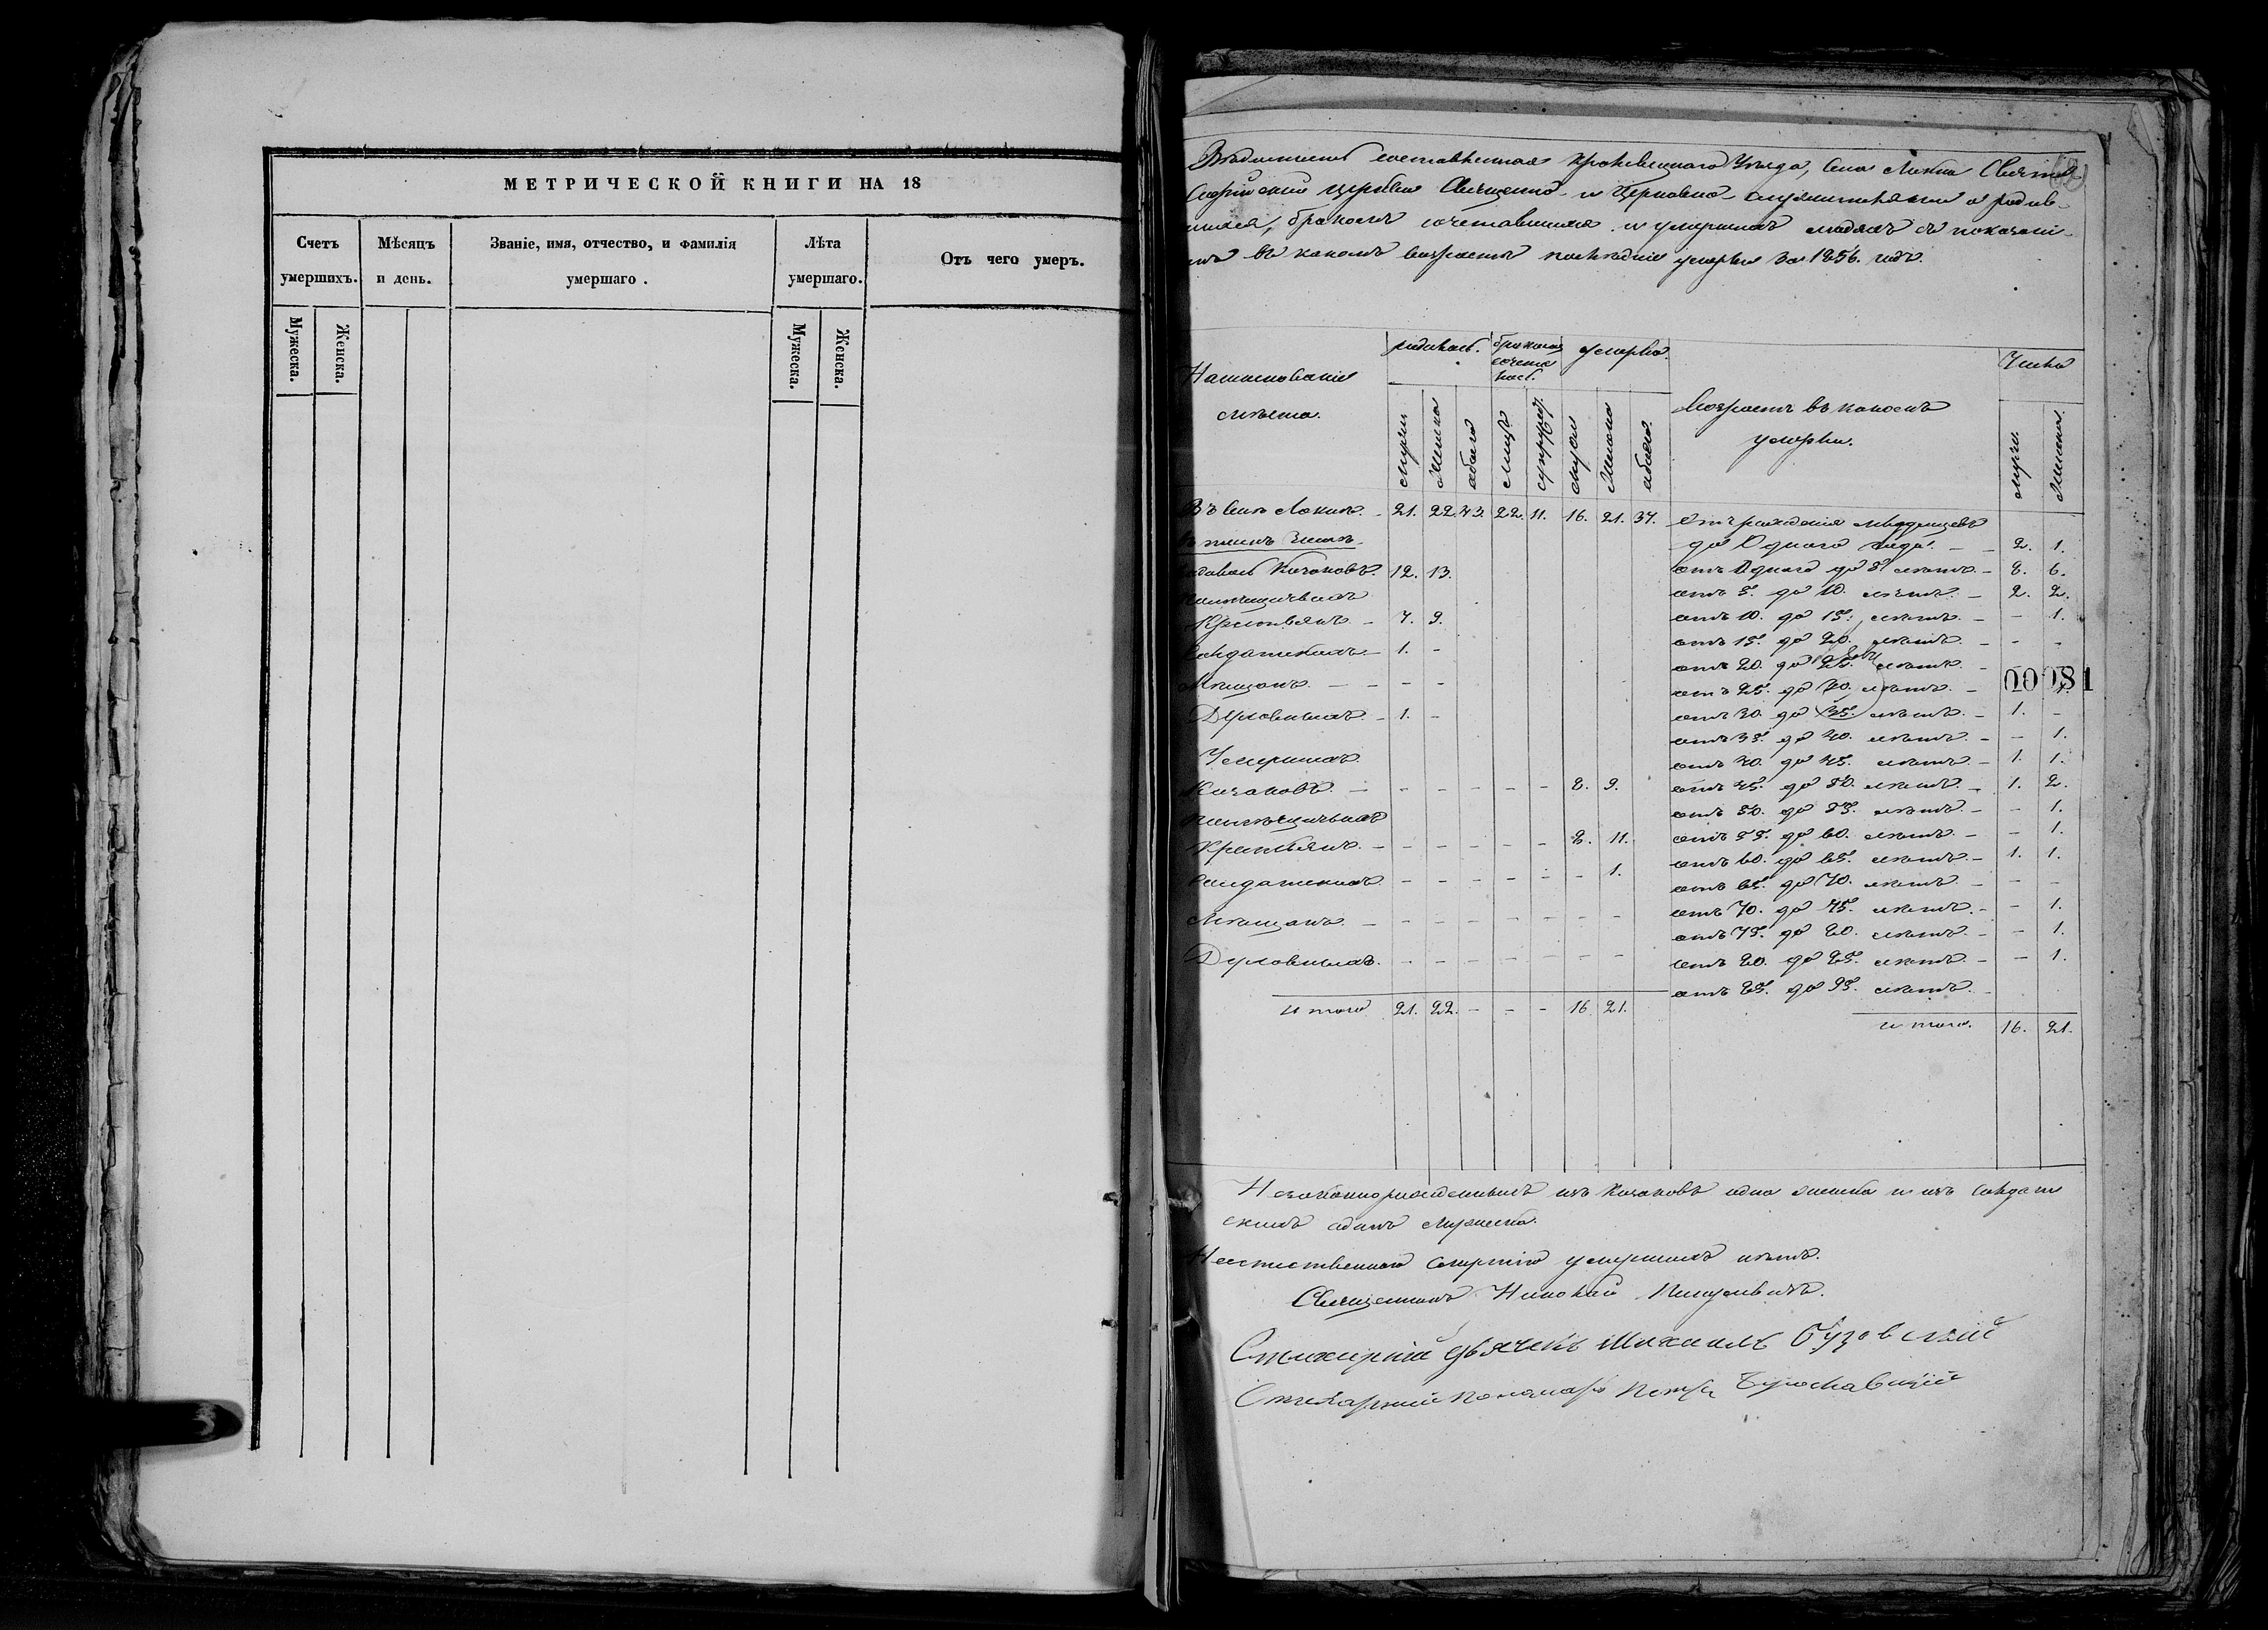 МЕТРИЧЕСКОЙ КНИГИ НА 18
Счетъ умершихъ.
Мѣсяцъ и день.
Званіе, имя, отчество, и фамилія умершаго.
Лѣта умершаго.
Отъ чего умеръ.
Мужеска.
Женска.
Мужеска.
Женска.
Вѣдомость составленная Кролевецкаго Уѣзда, Села Локни Свято-
церкви Священно- и церковно-служителями о родив-
шихся, бракомъ сочетавшихся и умершихъ людяхъ съ показані-
емъ въ какомъ возрастѣ послѣдніе умерли за 1856. годъ.
Наименованіе мѣста.
родилось.
бракомъ сочета лось.
умерло.
Возрастъ въ какомъ умерли.
Число
мужи
женска
обоего
лицъ
супружес.
мужи
женска
обоего.
мужи.
женска.
Въ Селѣ Локнѣ. - 21. 22. 43. 22. 11. 16. 21. 37.
отъ рожденія младенцевъ
до Одного года. - 2. 1.
въ томъ числѣ
родилось Козаковъ. 12. 13.
отъ Одного до 5 лѣтъ. - 8. 6.
помѣщичьихъ
отъ 5. до 10. лѣтъ. - 2. 2.
Крестьянъ - 7. 9.
отъ 10. до 15. лѣтъ. - - 1.
отъ 15. до 20. лѣтъ - - -
Солдатскихъ - 1. -
отъ 20. до 25. лѣтъ. -
Мѣщанъ. - - - -
отъ 25. до 30. лѣтъ. -
00081
Духовныхъ. - 1. -
отъ 30. до 35. лѣтъ. - 1. -
отъ 35. до 40. лѣтъ. - - 1.
Умершихъ
отъ 40. до 45. лѣтъ. - 1. 1.
Козаковъ. - - - - - - 8. 9.
отъ 45. до 50. лѣтъ. - 1. 2.
помѣщичьихъ
отъ 50. до 55. лѣтъ. - - 1.
Крестьянъ. - - - - - - 8. 11.
отъ 55. до 60. лѣтъ. - - 1.
отъ 60. до 65. лѣтъ. - 1. 1.
Солдатскихъ. - - - - - - 1.
отъ 65. до 70. лѣтъ. - - -
отъ 70. до 75. лѣтъ. - - 1.
Мѣщанъ. - - - - - - - -
отъ 75. до 80. лѣтъ. - - 1.
Духовныхъ. - - - - - - -
отъ 80. до 85. лѣтъ. - - 1.
отъ 85. до 95. лѣтъ. -
итого 21. 22. - - - 16. 21.
итого. 16. 21.
Незаконнорожденныхъ изъ Козаковъ одна женска и изъ Солдат
скихъ одинъ мужеска.
Неестественною смертію умершихъ нѣтъ.
Священникъ Николай
Стихарный дьячекъ Михаилъ Бузовскій
Стихарный пономарь Петръ